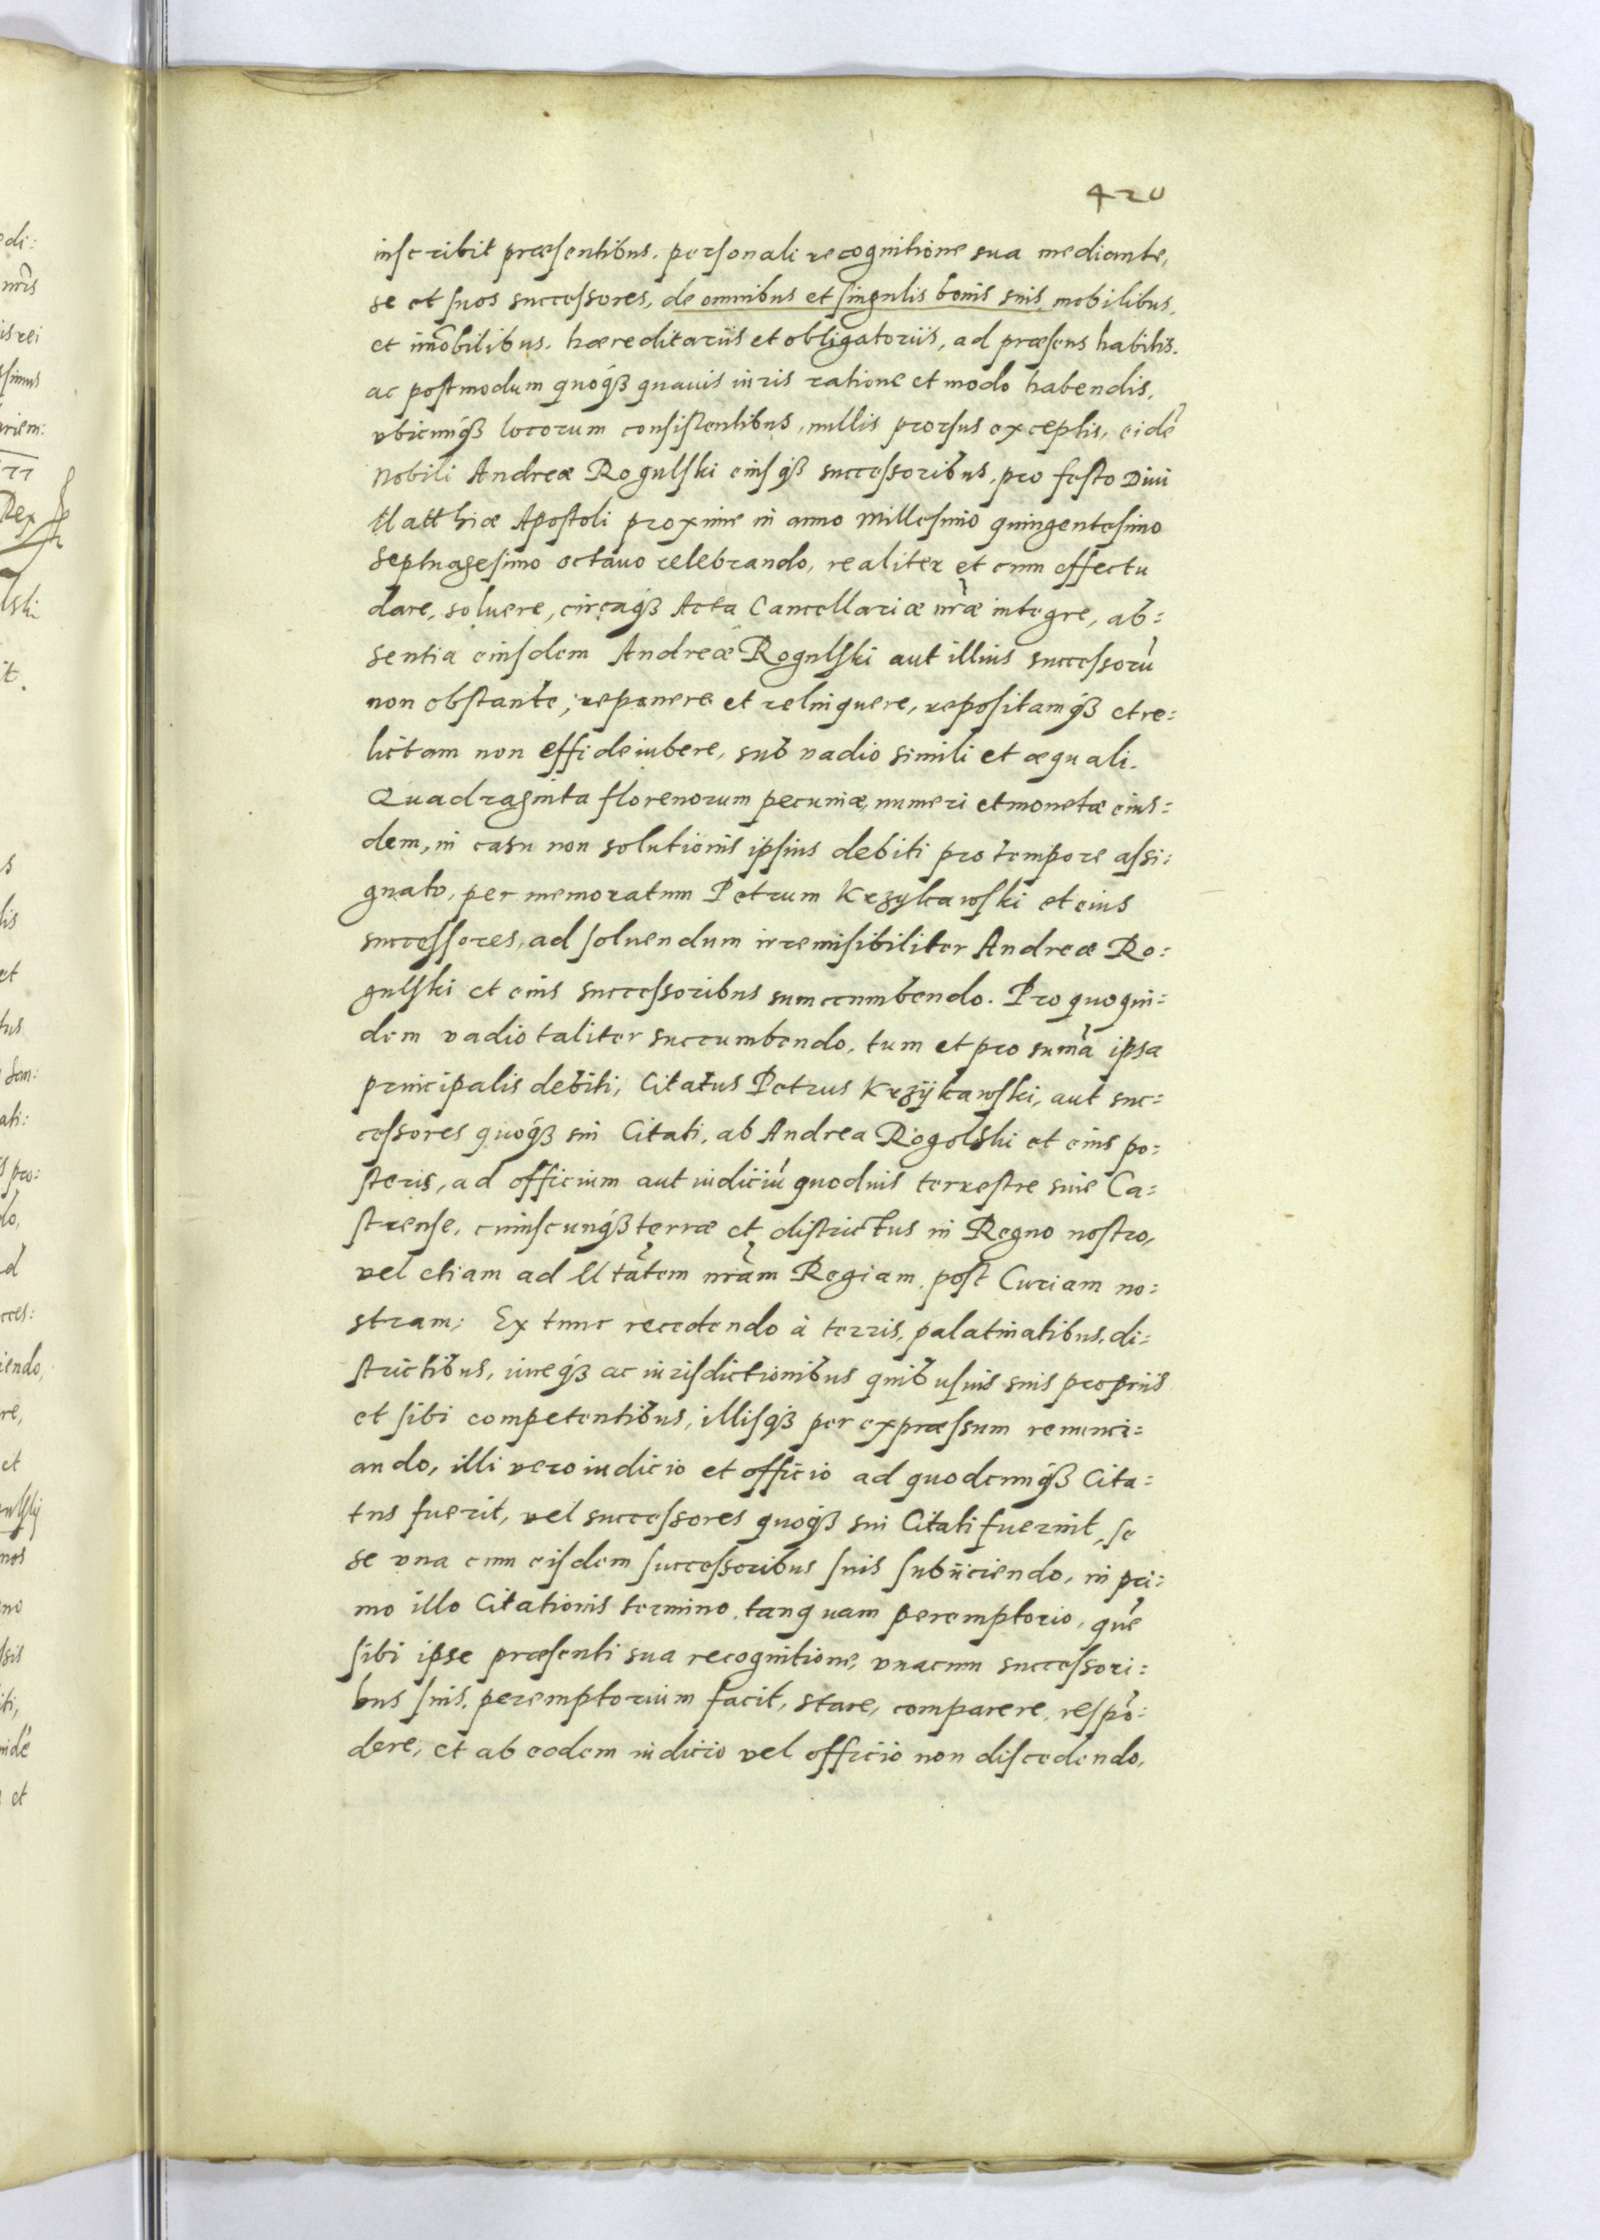 420
inscribit præsentibus, personali recognitione sua mediante,
se et suos successores, de omnibus et singulis bonis suis mobilibus,
et im̃obilibus, hæreditariis et obligatoriis, ad præsens habitis,
ac postmodum quoqȝ quauis iuris ratione et modo habendis,
vbicunqȝ locorum consistentibus, nullis prorsus exceptis, eidẽ
Nobili Andreæ Rogulski eiusqȝ successoribus, pro festo Diui
Matthiæ Apostoli proxime in anno Millesimo quingentesimo
septuagesimo octauo celebrando, realiter et cum effectu
dare, soluere, circaqȝ Acta Cancellariæ nr̃æ integre, ab:
sentia eiusdem Andreæ Rogulski aut illius successorũ
non obstante, reponere et relinquere, repositamqȝ et re:
lictam non effideiubere, sub vadio simili et æquali
Quadraginta florenorum pecuniæ, numeri et monetæ eius:
dem, in casu non solutionis ipsius debiti pro tempore assi:
gnato, per memoratum Petrum Krzykawski et eius
successores, ad soluendum irremisibiliter Andreæ Ro:
gulski et eius successoribus sumccumbendo. Pro quoqui:
dem vadio taliter succumbendo, tum et pro sum̃a ipsa
principalis debiti, Citatus Petrus Krzÿkawski, aut suc:
cessores quoqȝ sui Citati, ab Andrea Rogolski et eius po:
steris, ad officium aut iudiciũ quoduis terrestre siue Ca:
strense, cuiuscunqȝ terræ et districtus in Regno nostro,
vel etiam ad Mt̃atem nr̃am Regiam, post Curiam no:
stram; Ex tunc recedendo à terris, palatinatibus, di:
strictibus, iureqȝ ac iurisdictionibus quibusuis suis propriis
et sibi competentibus, illisqȝ per expræssum renunci:
ando, illi vero iudicio et officio ad quodcunqȝ Cita:
tus fuerit, vel successores quoqȝ sui Citati fuerint, se
se vna cum eisdem successoribus suis subiiciendo, in pri:
mo illo Citationis termino, tanquam peremptorio, quẽ
sibi ipse præsenti sua recognitione, vnacum successori:
bus suis, peremptorium facit, stare, comparere, respõ:
dere, et ab eodem iudicio vel officio non discedendo,